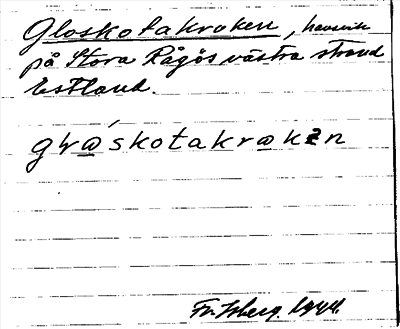 Gloskotakroken, havsvik
på Stora Rågös västra strand
Estland.
grɑ́skotakrɑkən
Fr. Isberg 1944.